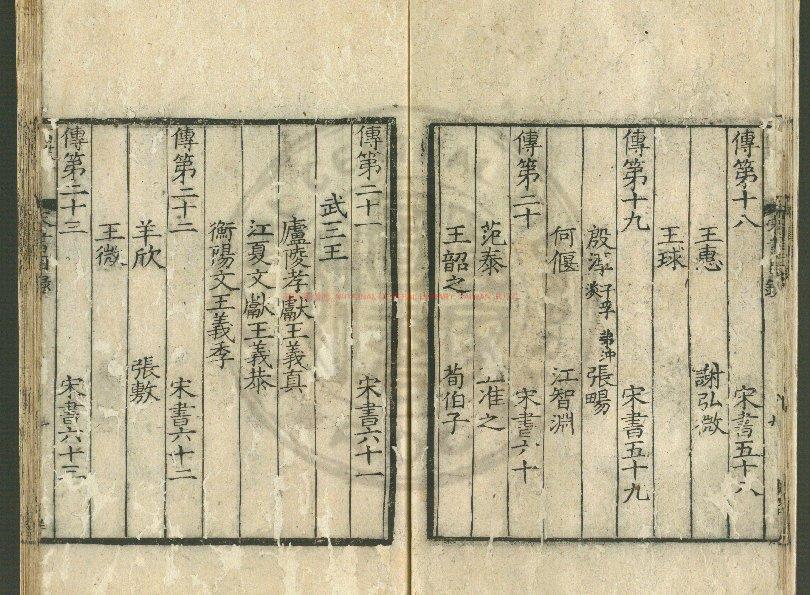 傳第十八 宋書五十八
王惠 謝弘微
王球
傳第十九 宋書五十九
殷淳 子孚 弟沖 淡 張暢
何偃 江智淵
傳第二十 宋書六十
范泰 准之
王韶之 荀伯子
傳第二十一 宋書六十一
武三王
廬陵孝獻王義真
江夏文獻王義恭
衡陽文王義季
傳第二十二 宋書六十二
羊欣 張敷
王微
傳第二十三 宋書六十三